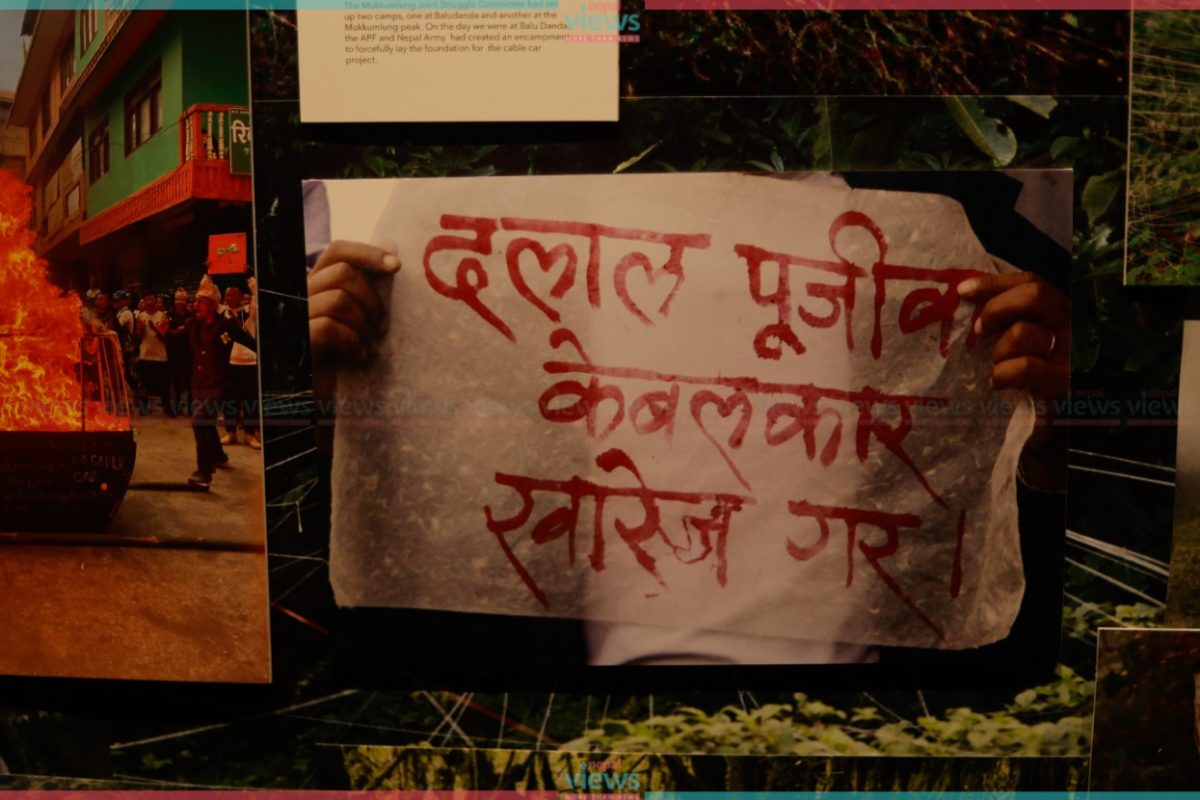 The Mukkumlung Joint Struggle Committee had set
up two camps, one at Baludanda and another at the
Mukkumlung peak. On the day we were at Balu Danda,
the APF and Nepal Army had created an encampment
to forcefully lay the foundation for the cable car
project.
nepal
views
MORE THAN NEWS
रि
दलाल पूजीवा
केबलकार
खारेज गर।
NO CABLE
CAR
views views views views
nepal
views views
nepal
views
MORE THAN NEWS